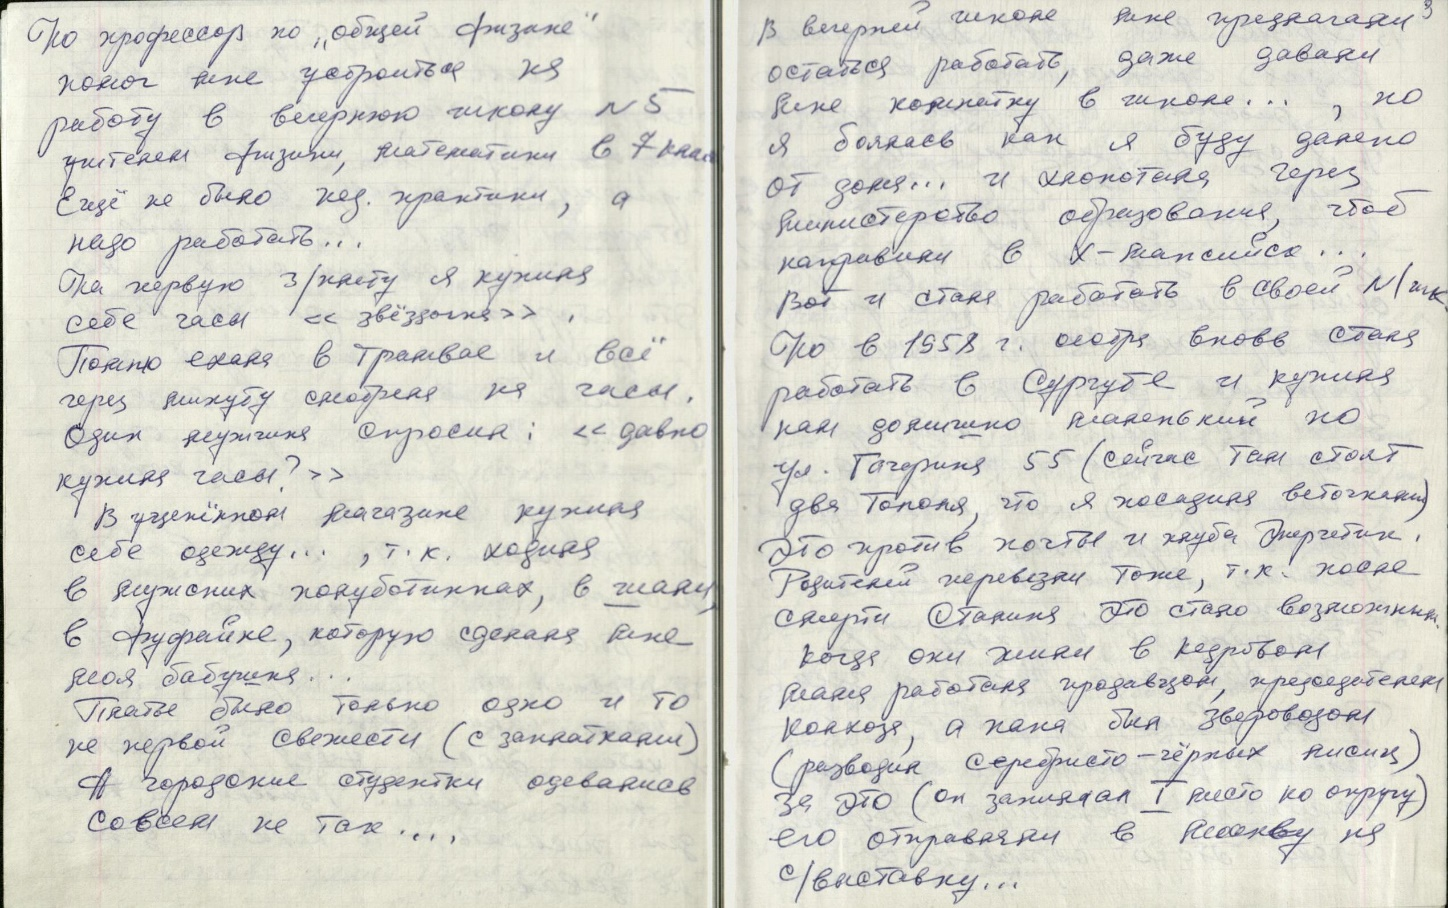 Но профессор по „общей физике"
помог мне устроиться на
работу в вечернюю школу N 5
учителем физики, математики в 7 класс
Ещё не было пед. практики, а
надо работать...
На первую з/плату я купила
себе часы << звёздочка>>.
Помню ехала в трамвае и всё
через минуту смотрела на часы.
Один мужчина спросил: << давно
купила часы? >>
В уценённом магазине купила
себе одежду... , т.к. ходила
в мужских полуботинках, в шали,
в фуфайке, которую сделала мне
моя бабушка...
Платье было только одно и то
не первой свежести (с заплатками)
А городские студентки одевались
совсем не так....
3
В вечерней школе мне предлагали
остаться работать, даже давали
мне комнатку в школе... , но
я боялась как я буду далеко
от дома... и хлопотала через
министерство образования, чтоб
направили в Х-Мансийск...
Вот и стала работать в своей N1 шк.
Но в 1958 г. сестра вновь стала
работать в Сургуте и купила
нам домишко маленький по
ул. Гагарина 55 (сейчас там стоят
два тополя, что я посадила веточками)
Это против почты и клуба Энергетик.
Родителей перевезли тоже, т.к. после
смерти Сталина это стало возможным.
Когда они жили в Кедровом
мама работала продавцом, председателем
колхоза, а папа был звероводом
(разводил серебристо-чёрных лисиц)
За это (он занимал I место по округу)
его отправляли в Москву на
с/выставку...